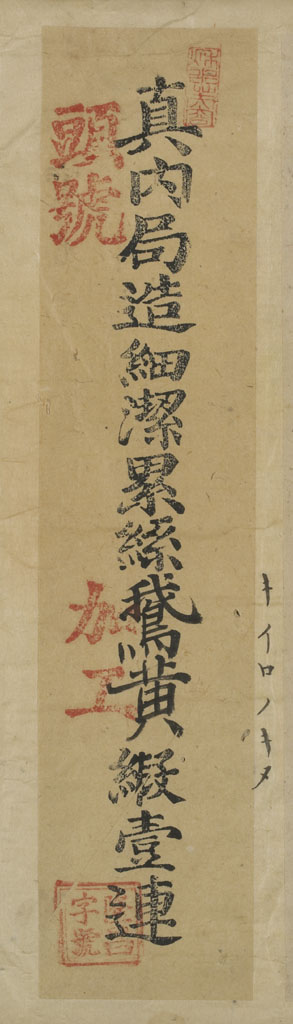 真内局造細潔累絲鵞黄緞壹連
頭號
加工
字號
キイロノキヌ